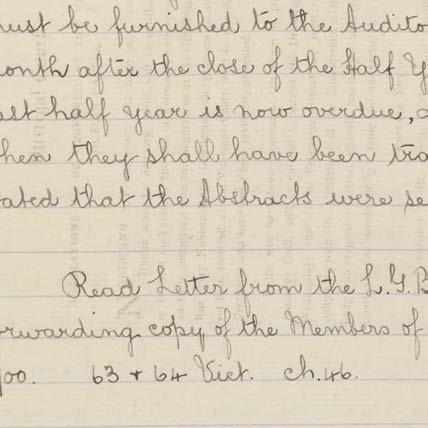 must be furnished to the Audito
month after the close of the Half Y
ast half year is now overdue,
when they shall have been tra
tated that the Abstracts were se
Read Letter from the L.G.B
orwarding copy of the Members of
900. 63 + 64 Vict. ch. 46.